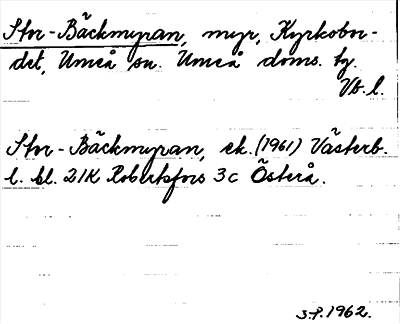 Stor-Bäckmyran, myr, Kyrkobor-
det, Umeå sn. Umeå doms. by.
Vb. l.
Stor-Bäckmyran, ek. (1961) Västerb.
l. bl. 21K Robertsfors 3c Österå.
S.F. 1962.